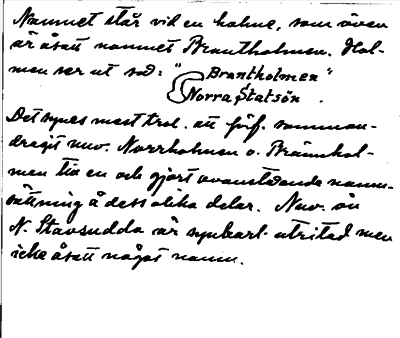 Namnet står vid en holme, som även
är åsatt namnet Brantholmen. Hol-
men ser ut så: "Brantholmen"
Norra Statsön.
Det synes mest trol. att förf. samman-
dragit nuv. Norrholmen o. Brännhol-
men till en och gjort ovanstående namn-
sättning å dess olika delar. Nuv. ön
N. Stavsudda är synbarl. utritad men
icke åsatt något namn.